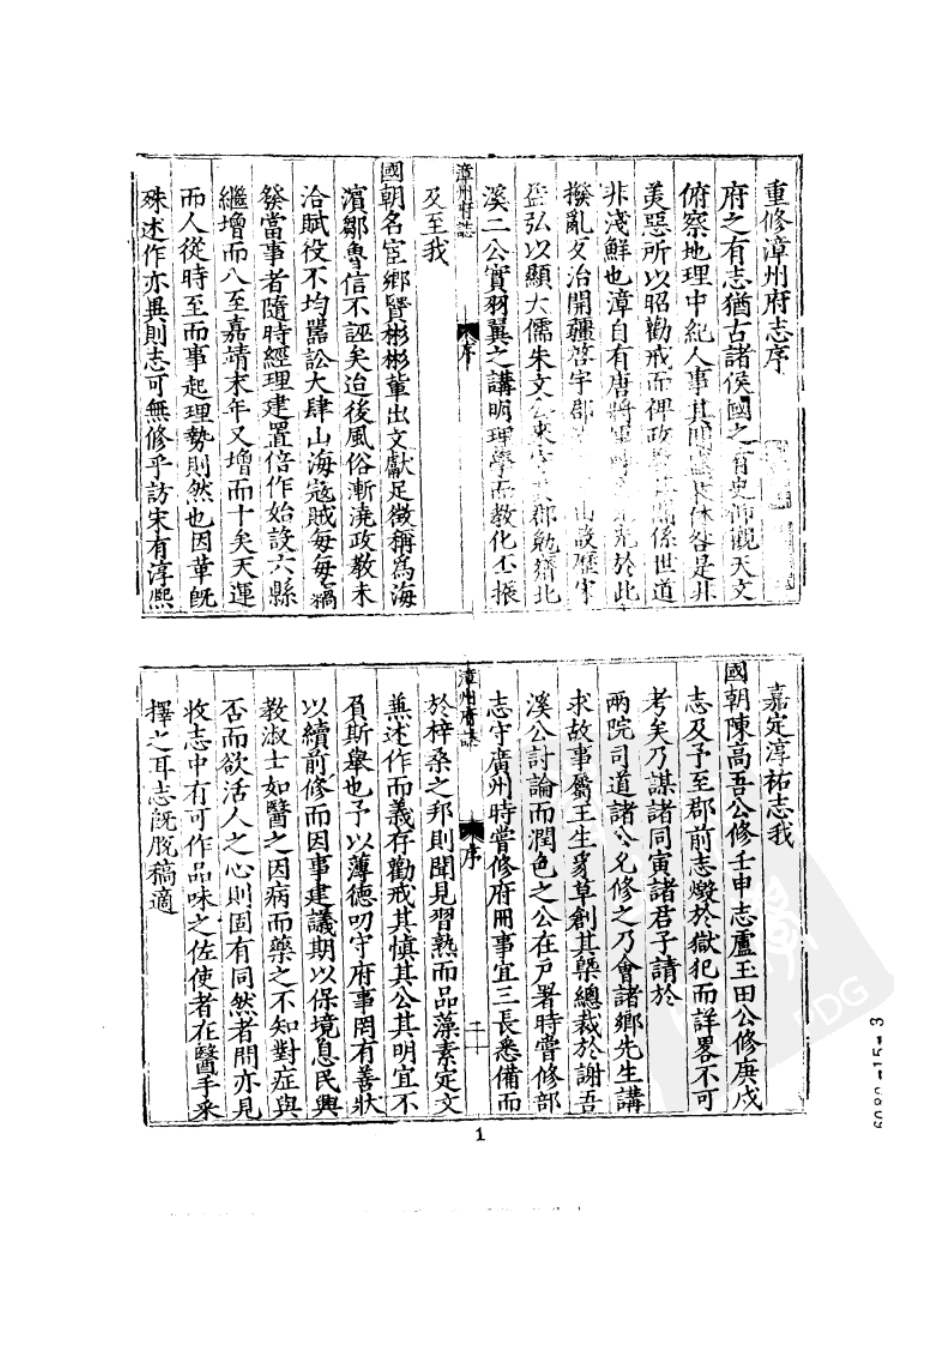 重修漳州府志序
府之有志猶古諸侯國之有史仰觀天文
俯察地理中紀人事其是非
美惡所以昭勸戒而裨政關係世道
非淺鮮也漳自有唐將軍於此
撥亂反治開疆啓宇郡設歷宋
益弘以顯大儒朱文公來守郡勉齋北
溪二公實羽翼之講明理學而教化丕振
漳州府誌
序
及至我
國朝名宦鄉賢彬彬輩出文獻足徵稱為海
濵鄒魯信不誣矣迨後風俗漸澆政教未
洽賦役不均嚚訟大肆山海寇賊每每竊
發當事者隨時經理建置倍作始設六縣
繼增而八至嘉靖末年又增而十矣天運
而人從時至而事起理勢則然也因革旣
殊述作亦異則志可無修乎訪宋有淳熙
嘉定淳祐志我
國朝陳高吾公修壬申志盧玉田公修庚戌
志及予至郡前志燬於獄犯而詳畧不可
考矣乃謀諸同寅諸君子請於
兩院司道諸公允修之乃會諸鄉先生講
求故事屬王生草創其槩總裁於謝吾
溪公討論而潤色之公在戶署時嘗修部
志守廣州時嘗修府冊事宜三長悉備而
漳州府誌
序
二
於梓桑之邦則聞見習熟而品藻素定文
無述作而義存勸戒其慎其公其明宜不
負斯舉也予以薄德叨守府事罔有善狀
以續前修而因事建議期以保境息民興
教淑士如醫之因病而藥之不知對症與
否而欲活人之心則固有同然者間亦見
收志中有可作品味之佐使者在醫手采
擇之耳志旣脫稿適
1